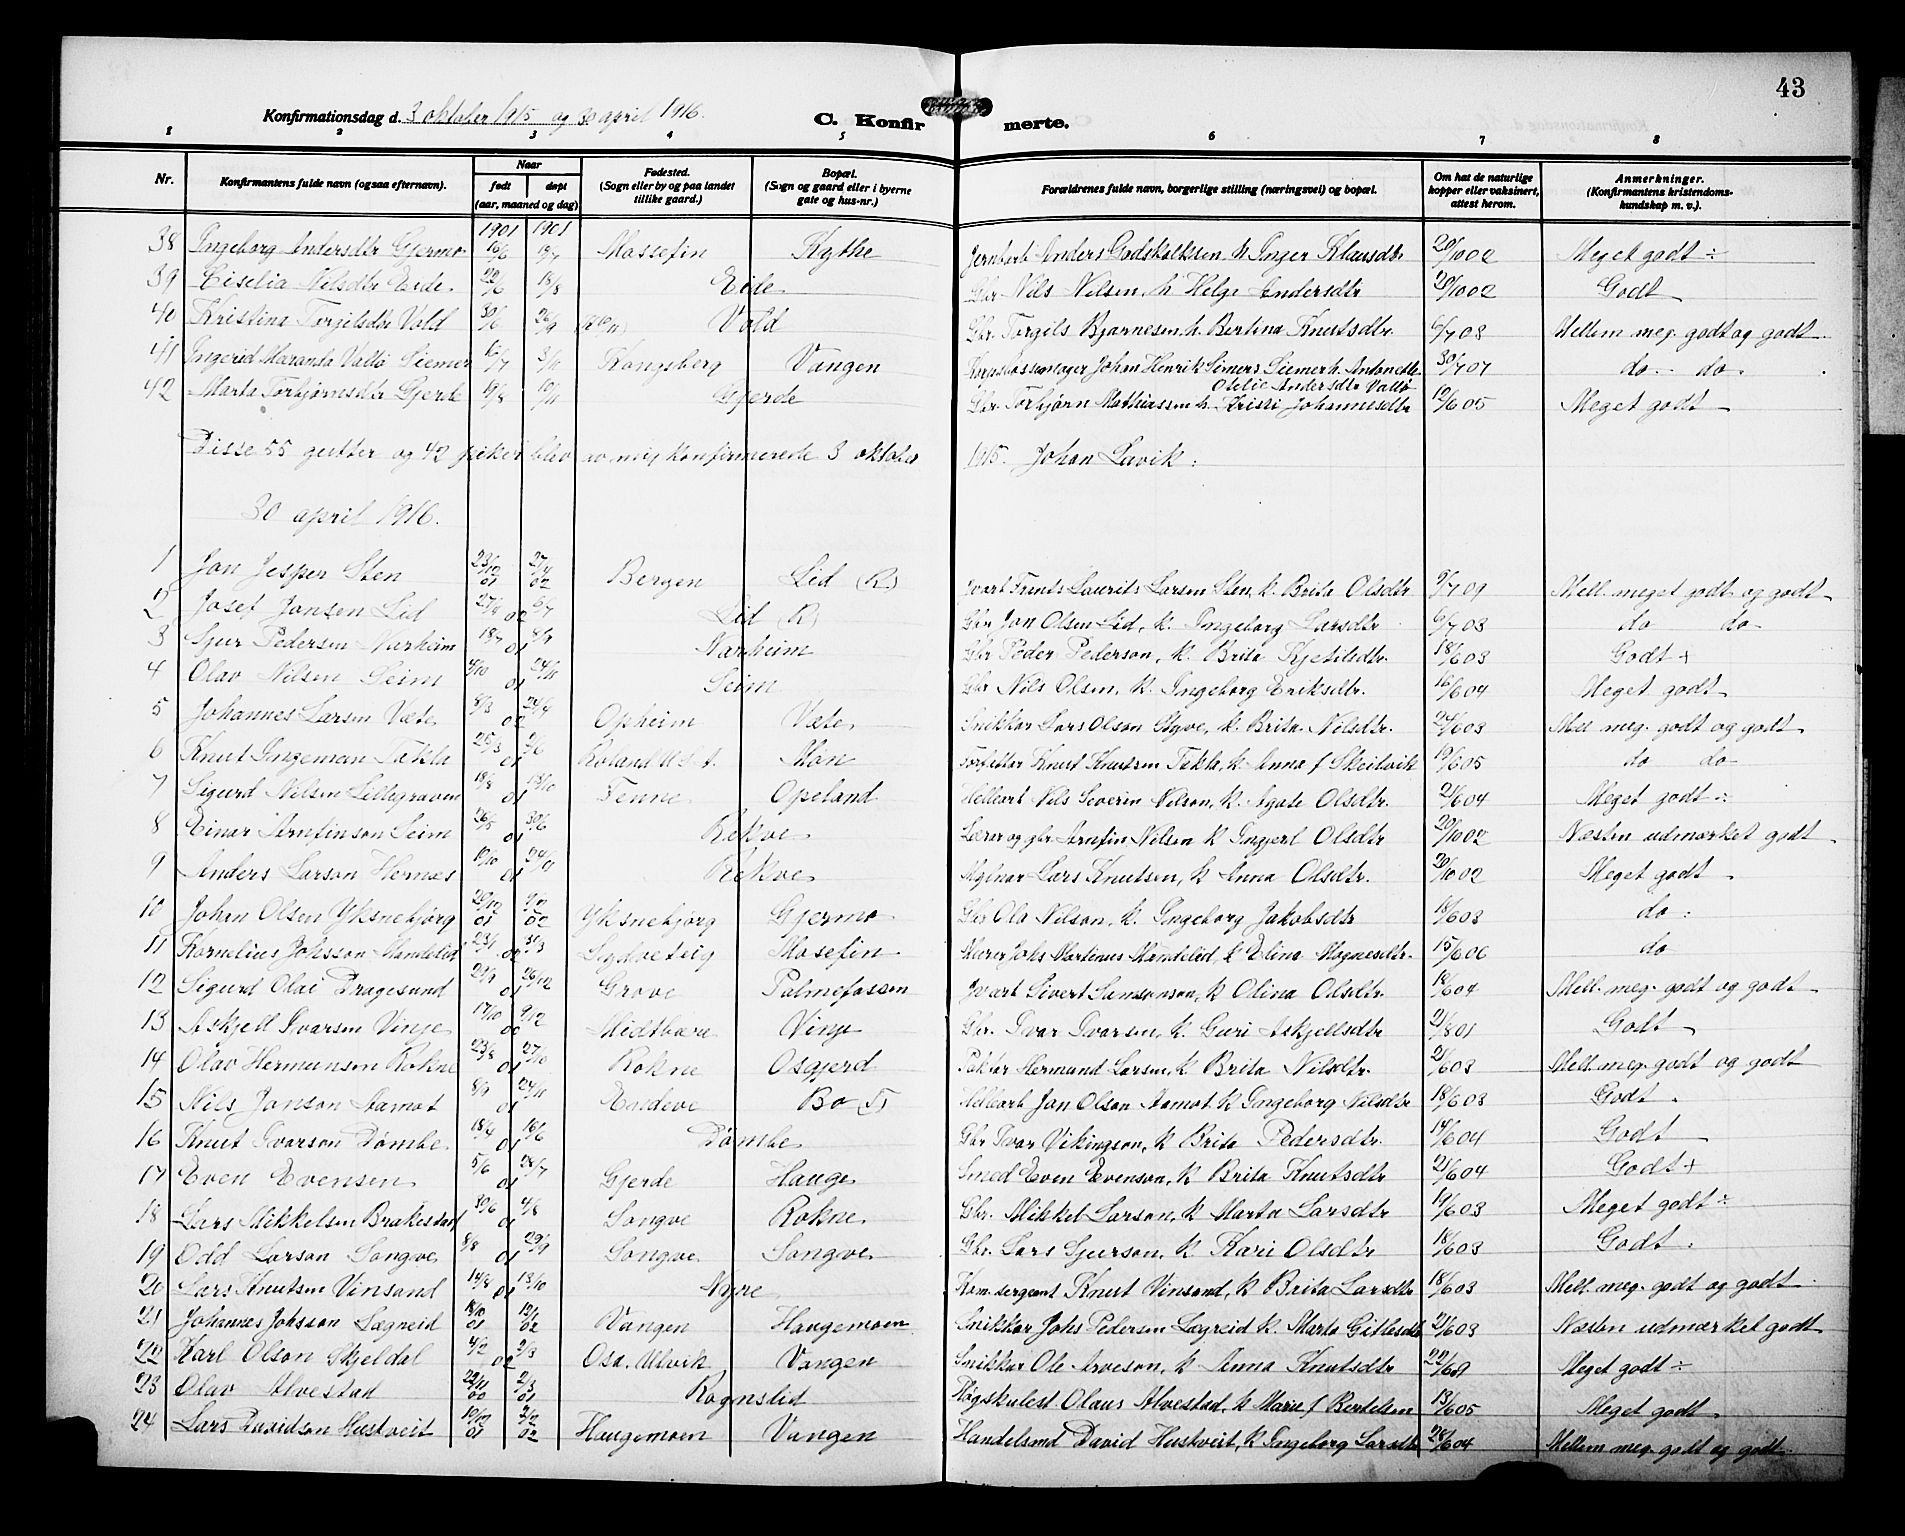 43
Konfirmationsdag d. 3 oktober 1915 og 30 april 1916.
C. Konfirmerte.
1 2 3 4 5 6 7 8
Nr. Konfirmantens fulde navn (ogsaa efternavn). Naar født døpt (aar, maaned og dag) Fødested. (Sogn eller by og paa landet tillike gaard.) Bopæl. (Sogn og gaard eller i byerne gate og hus-nr.) Forældrenes fulde navn, borgerlige stilling (næringsvei) og bopæl. Om hat de naturlige kopper eller vaksinert, attest herom. Anmerkninger. (Konfirmantens kristendomskundskap m. v.).
1901 1901
38 Ingeborg Andersdtr Gjermo 16/6 14/7 Mossefin Kythe Anders Godskalksen k Inger Klausdtr 20/10 02 Meget godt ÷
39 Siselia Nilsdtr Eide 22/6 18/8 Eide Gbr Nils Nilsen, k Helge Andersdtr 20/10 02 Godt
40 Kristine Torgilsdtr Vold 30/6 26/9 Vold Gbr Torgils Bjarnesen, k. Bertina Knutsdtr. 6/7 08 Mellem meg. godt og godt
41 Ingerid Maranda Vallø Siemer 16/7 3/11 Kongsberg Vangen Johan Henrik Siemers Siemer k. Antonette Otelie Andersdtr Vallø 30/7 07 do do
42 Marta Torbjørnsdtr Gjerde 19/8 10/11 Gjerde Gbr Torbjørn Mathiassen k. Kristi Johannesdtr 19/6 05 Meget godt
Disse 55 gutter og 42 piker blev av mig konfirmerede 3 oktober 1915. Johan Lavik.
30 april 1916.
1 Jon Jesper Sten 23/12 01 27/4 02 Bergen Lid (R) Frents Laurits Larsen Sten, k. Brita Olsdtr. 9/7 09 Mell. meget godt og godt
2 Josef Jonsen Lid 27/4 02 6/7 Lid (R) Gbr Jon Olsen Lid, k. Ingeborg Larsdtr 6/7 03 do do
3 Sjur Pedersen Narheim 18/7 01 8/9 Narheim Gbr Peder Pederson, k. Brita Kjetilsdtr. 18/6 03 Godt +
4 Olav Nilsen Seim 4/10 01 24/11 Seim Gbr Nils Olsen, k. Ingeborg Eriksdtr. 16/6 04 Meget godt
5 Johannes Larsen Væte 8/3 02 24/4 Opheim Væte Snikkar Lars Olson Styve, k. Brita Nilsdtr. 24/6 03 Mell meg. godt og godt
6 Knut Ingeman Takla 25/3 01 9/6 Roland U.S.A. Møn Forfattar Knut Knutsen Takla, k. Anna f Skeilvik 19/6 05 do do
7 Sigurd Nilsen Lillegraven 18/8 01 13/10 Fenne Opeland Nils Severin Nilson, k. Agate Olsdtr. 21/6 04 Meget godt ÷
8 Einar Arnfinson Seim 26/5 01 30/6 Rekve Lærer og gbr Arnfin Nilsen k Ingjerd Olsdtr 20/10 02 Næsten udmærket godt
9 Anders Larson Hernes 19/10 01 24/11 Rekve Lars Knutsen, k Anna Olsdtr. 20/10 02 Meget godt
10 Johan Olsen Yksnebjørg 29/12 01 9/2 02 Yksnebjørg Gjermo Gbr Ola Nilson, k. Ingeborg Jakobsdtr 18/6 03 do
11 Kornelius Johsson Mandelid 23/1 02 31/3 Sydveteig Mosefin Murer Johs Martinus Mandelid, k Elina Mognesdtr. 15/6 06 do
12 Sigurd Olai Dragesund 29/9 01 26/12 Grove Palmefossen Sivert Samsonson, k Odina Olsdtr. 18/6 04 Mell. meg. godt og godt
13 Askjell Ivarsen Vinje 17/10 00 9/12 Midtbære Vinje Gbr. Ivar Ivarsen, k. Guri Askjellsdtr 21/8 01 Godt
14 Olav Hermundson Rokne 23/8 01 27/10 Rokne Osgjerd Paktar Hermund Larsen, k Brita Nilsdtr. 21/6 03 Mell. meg. godt og godt
15 Nils Jonson Aamot 8/9 01 24/11 Endeve Bø (T) Jon Olson Aamot k Ingeborg Nilsdtr 18/6 03 Godt
16 Knut Ivarson Dømbe 18/4 01 16/6 Dømbe Gbr Ivar Vikingson, k Brita Pedersdtr. 14/6 04 Godt
17 Even Evensen 5/6 01 28/7 Gjerde Hauge Smed Even Evenson, k Brita Knutsdtr 21/6 04 Godt +
18 Lars Mikkelsen Brakestad 30/6 01 4/8 Songve Rokne Gbr. Mikkel Larson, k Marta Larsdtr 19/6 03 Meget godt ÷
19 Odd Larson Songve 8/8 01 29/9 Songve Songve Gbr. Lars Sjurson, k Kari Olsdtr 18/6 03 Godt
20 Lars Knutsen Vinsand 14/8 01 13/10 Kom.sergeant Knut Vinsand, k Brita Larsdtr 18/6 03 Mell. meg. godt og godt
21 Johannes Johsson Lægreid 18/10 01 19/1 02 Vangen Haugemoen Snikkar Johs Pedersen Lægreid k. Marta Gitlesdtr 21/6 03 Næsten udmærket godt
22 Karl Olson Skjeldal 4/2 02 2/3 Osa, Ulvik Vangen Snikkar Ole Arveson, k Anna Knutsdtr. 22/6 09 Meget godt ÷
23 Olav Alvestad 22/11 00 2/3 01 Rognslid Høgskulest Olaus Alvestad, k Marie f Bertelsen 13/6 05 Meget godt
24 Lars Davidson Huskveit 19/12 01 2/2 02 Haugemoen Vangen Handelsmd David Huskveit, k Ingeborg Larsdtr 28/6 04 Mellem meg. godt og godt